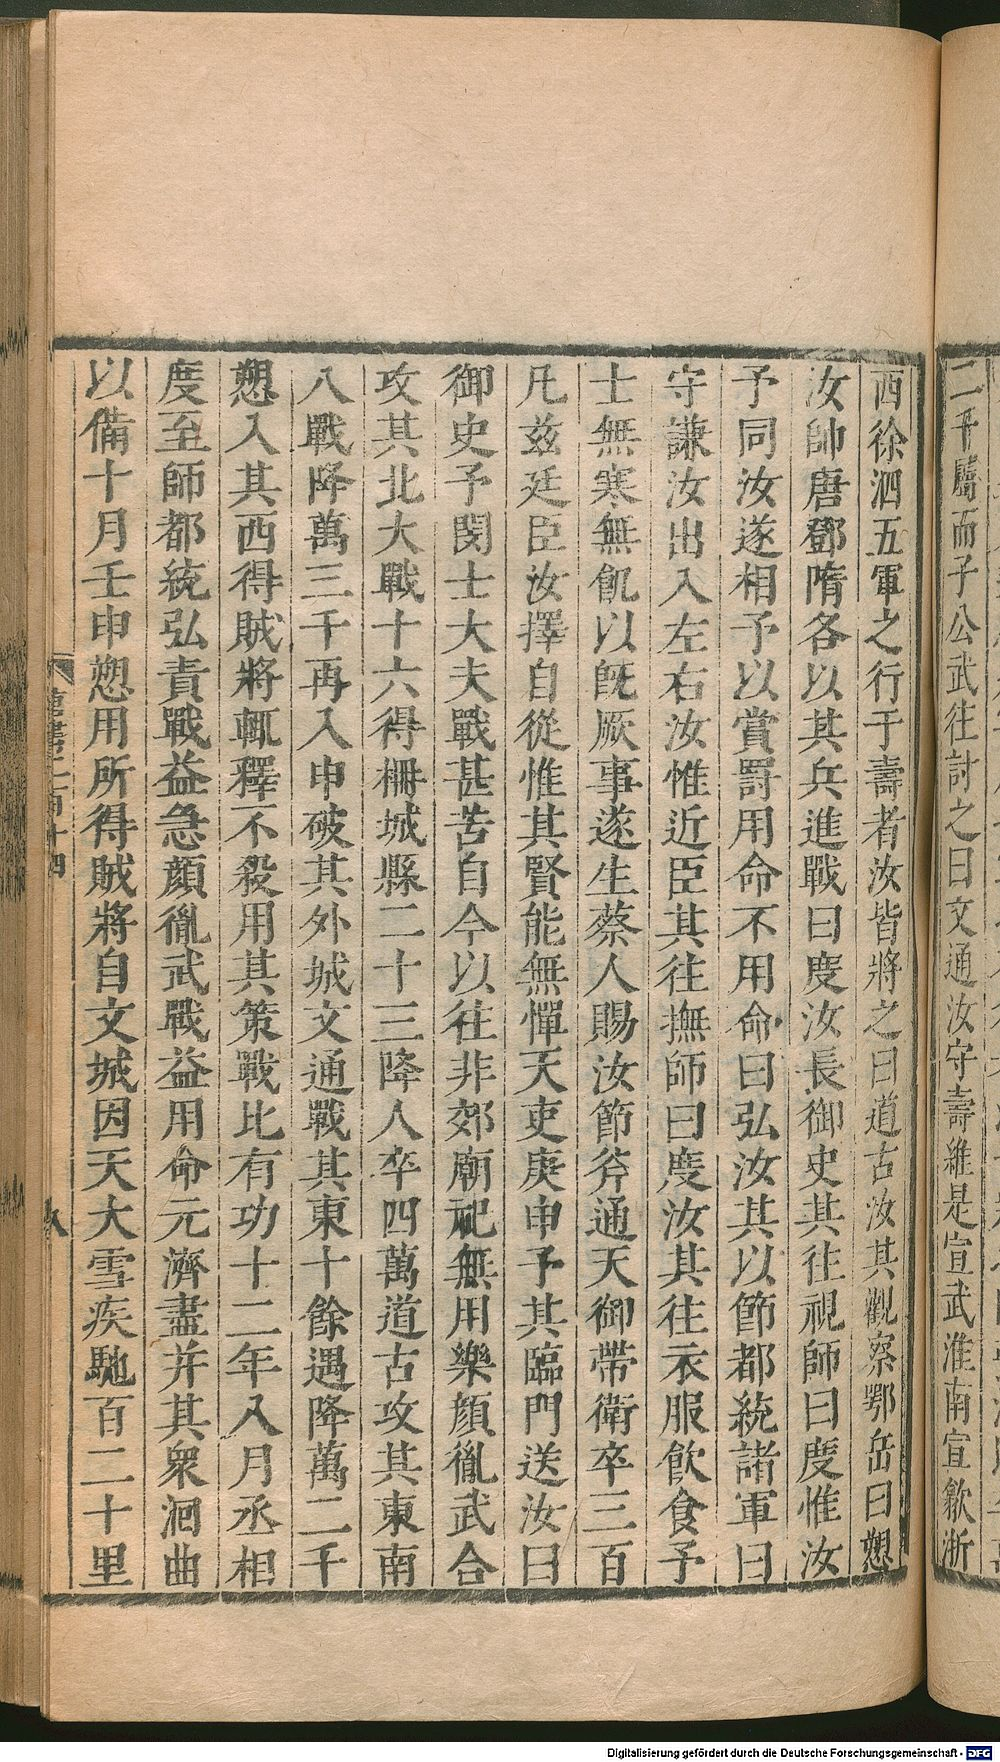 二千屬而子公武往討之曰文通汝守壽維是宣武淮南宣歙浙
西徐泗五軍之行于壽者汝皆將之曰道古汝其觀察鄂岳曰愬
汝帥唐鄧隋各以其兵進戰曰度汝長御史其往視師曰度惟汝
予同汝遂相予以賞罰用命不用命曰弘汝其以節都統諸軍曰
守謙汝出入左右汝惟近臣其往撫師曰度汝其往衣服飲食予
士無寒無飢以旣厥事遂生蔡人賜汝節斧通天御帶衛卒三百
凡茲廷臣汝擇自從惟其賢能無憚大吏庚申予其臨門送汝曰
御史予閔士大夫戰甚苦自今以往非郊廟祀無用樂顏胤武合
攻其北大戰十六得柵城縣二十三降人卒四萬道古攻其東南
八戰降萬三千再入申破其外城文通戰其東十餘遇降萬二千
愬入其西得賊將輒釋不殺用其策戰比有功十二年八月丞相
度至師都統弘責戰益急顏胤武戰益用命元濟盡并其衆洄曲
以備十月壬申愬用所得賊將自文城因天大雪疾馳百二十里
唐書二百十四
八
Digitalisierung gefördert durch die Deutsche Forschungsgemeinschaft - DFG